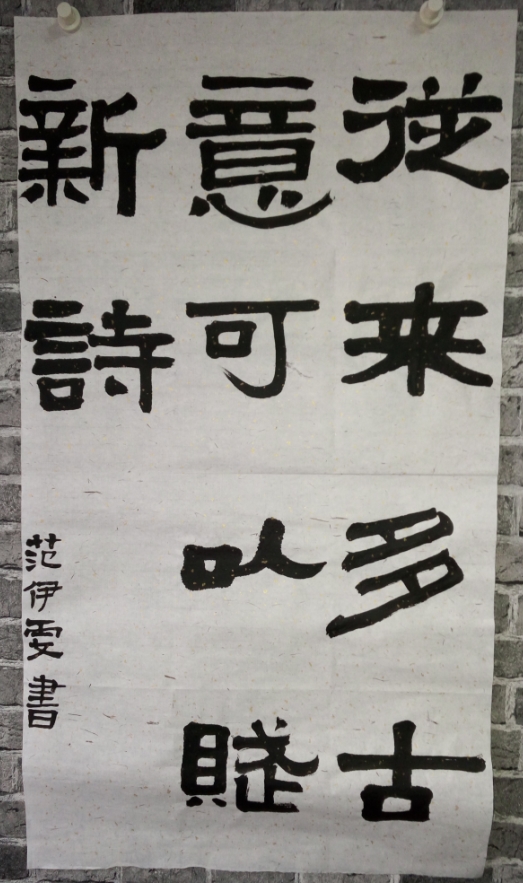 從来多古
意可以賦
新詩
范伊雯書